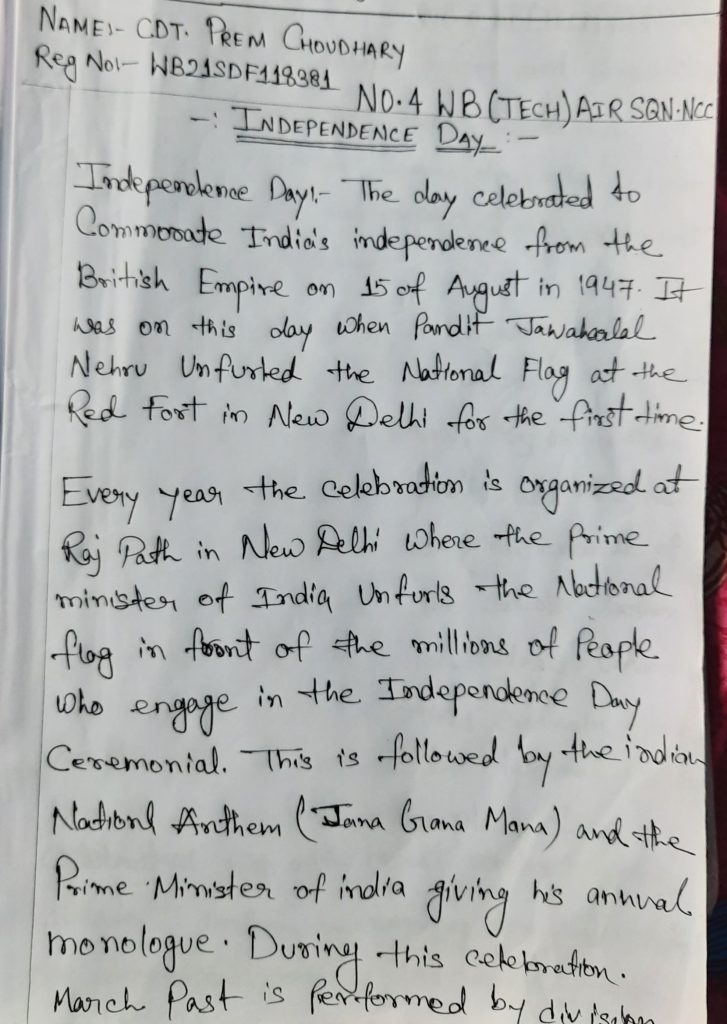 NAME:- CDT. PREM CHOUDHARY
Reg No:- WB21SDF118381
NO.4 WB (TECH) AIR SQN.NCC
-: INDEPENDENCE DAY :-
Independence Day:- The day celebrated to
Commorate India's independence from the
British Empire on 15 of August in 1947. It
was on this day when Pandit Jawaharlal
Nehru Unfurled the National Flag at the
Red Fort in New Delhi for the first time.
Every year the celebration is organized at
Raj Path in New Delhi where the prime
minister of India Unfurls the National
flag in front of the millions of People
who engage in the Independence Day
Ceremonial. This is followed by the indian
Nationl Anthem (Jana Gana Mana) and the
Prime Minister of india giving his annual
monologue. During this celebration.
March Past is performed by division